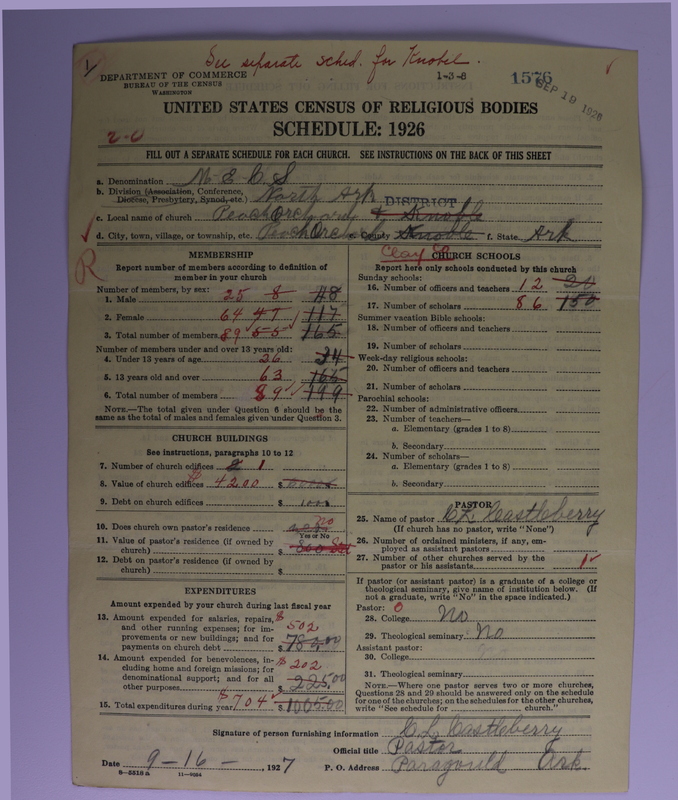 See separate sched. for Knobel.
DEPARTMENT OF COMMERCE
BUREAU OF THE CENSUS
WASHINGTON
1-3-8
1576
SEP 19 1928
UNITED STATES CENSUS OF RELIGIOUS BODIES
SCHEDULE: 1926
2-0
FILL OUT A SEPARATE SCHEDULE FOR EACH CHURCH. SEE INSTRUCTIONS ON THE BACK OF THIS SHEET
a. Denomination M E C S
b. Division (Association, Conference, Diocese, Presbytery, Synod, etc.) North Ark DISTRICT
c. Local name of church Peach Orchard & Knoble
d. City, town, village, or township, etc. Peach Orc e. County Knoble f. State Ark
Clay
R
MEMBERSHIP
Report number of members according to definition of
member in your church
Number of members, by sex:
1. Male 25 8 48
2. Female 64 47 117
3. Total number of members 89 55 165
Number of members under and over 13 years old:
4. Under 13 years of age 26 34
5. 13 years old and over 63 165
6. Total number of members 89 199
NOTE.—The total given under Question 6 should be the
same as the total of males and females given under Question 3.
CHURCH BUILDINGS
See instructions, paragraphs 10 to 12
7. Number of church edifices 2 1
8. Value of church edifices $ 4200 $
9. Debt on church edifices $ 1000
10. Does church own pastor's residence no
Yes or No
11. Value of pastor's residence (if owned by
church) $ 800
12. Debt on pastor's residence (if owned by
church) $
EXPENDITURES
Amount expended by your church during last fiscal year
13. Amount expended for salaries, repairs,
and other running expenses; for im-
provements or new buildings; and for
payments on church debt $ 502 $ 780.00
14. Amount expended for benevolences, in-
cluding home and foreign missions; for
denominational support; and for all
other purposes $ 202 225.00
15. Total expenditures during year $ 704 $ 1005.00
CHURCH SCHOOLS
Report here only schools conducted by this church
Sunday schools:
16. Number of officers and teachers 12 20
17. Number of scholars 86 150
Summer vacation Bible schools:
18. Number of officers and teachers
19. Number of scholars
Week-day religious schools:
20. Number of officers and teachers
21. Number of scholars
Parochial schools:
22. Number of administrative officers
23. Number of teachers—
a. Elementary (grades 1 to 8)
b. Secondary
24. Number of scholars—
a. Elementary (grades 1 to 8)
b. Secondary
PASTOR
25. Name of pastor C L Castleberry
(If church has no pastor, write "None")
26. Number of ordained ministers, if any, em-
ployed as assistant pastors
27. Number of other churches served by the
pastor or his assistants 1
If pastor (or assistant pastor) is a graduate of a college or
theological seminary, give name of institution below. (If
not a graduate, write "No" in the space indicated.)
Pastor: 0
28. College No
29. Theological seminary No
Assistant pastor:
30. College
31. Theological seminary
NOTE.—Where one pastor serves two or more churches,
Questions 28 and 29 should be answered only on the schedule
for one of the churches; on the schedules for the other churches,
write "See schedule for church."
Signature of person furnishing information C L Castleberry
Official title Pastor
Date 9-16-, 1927 P. O. Address Paragould Ark.
8-5518a 11-9024